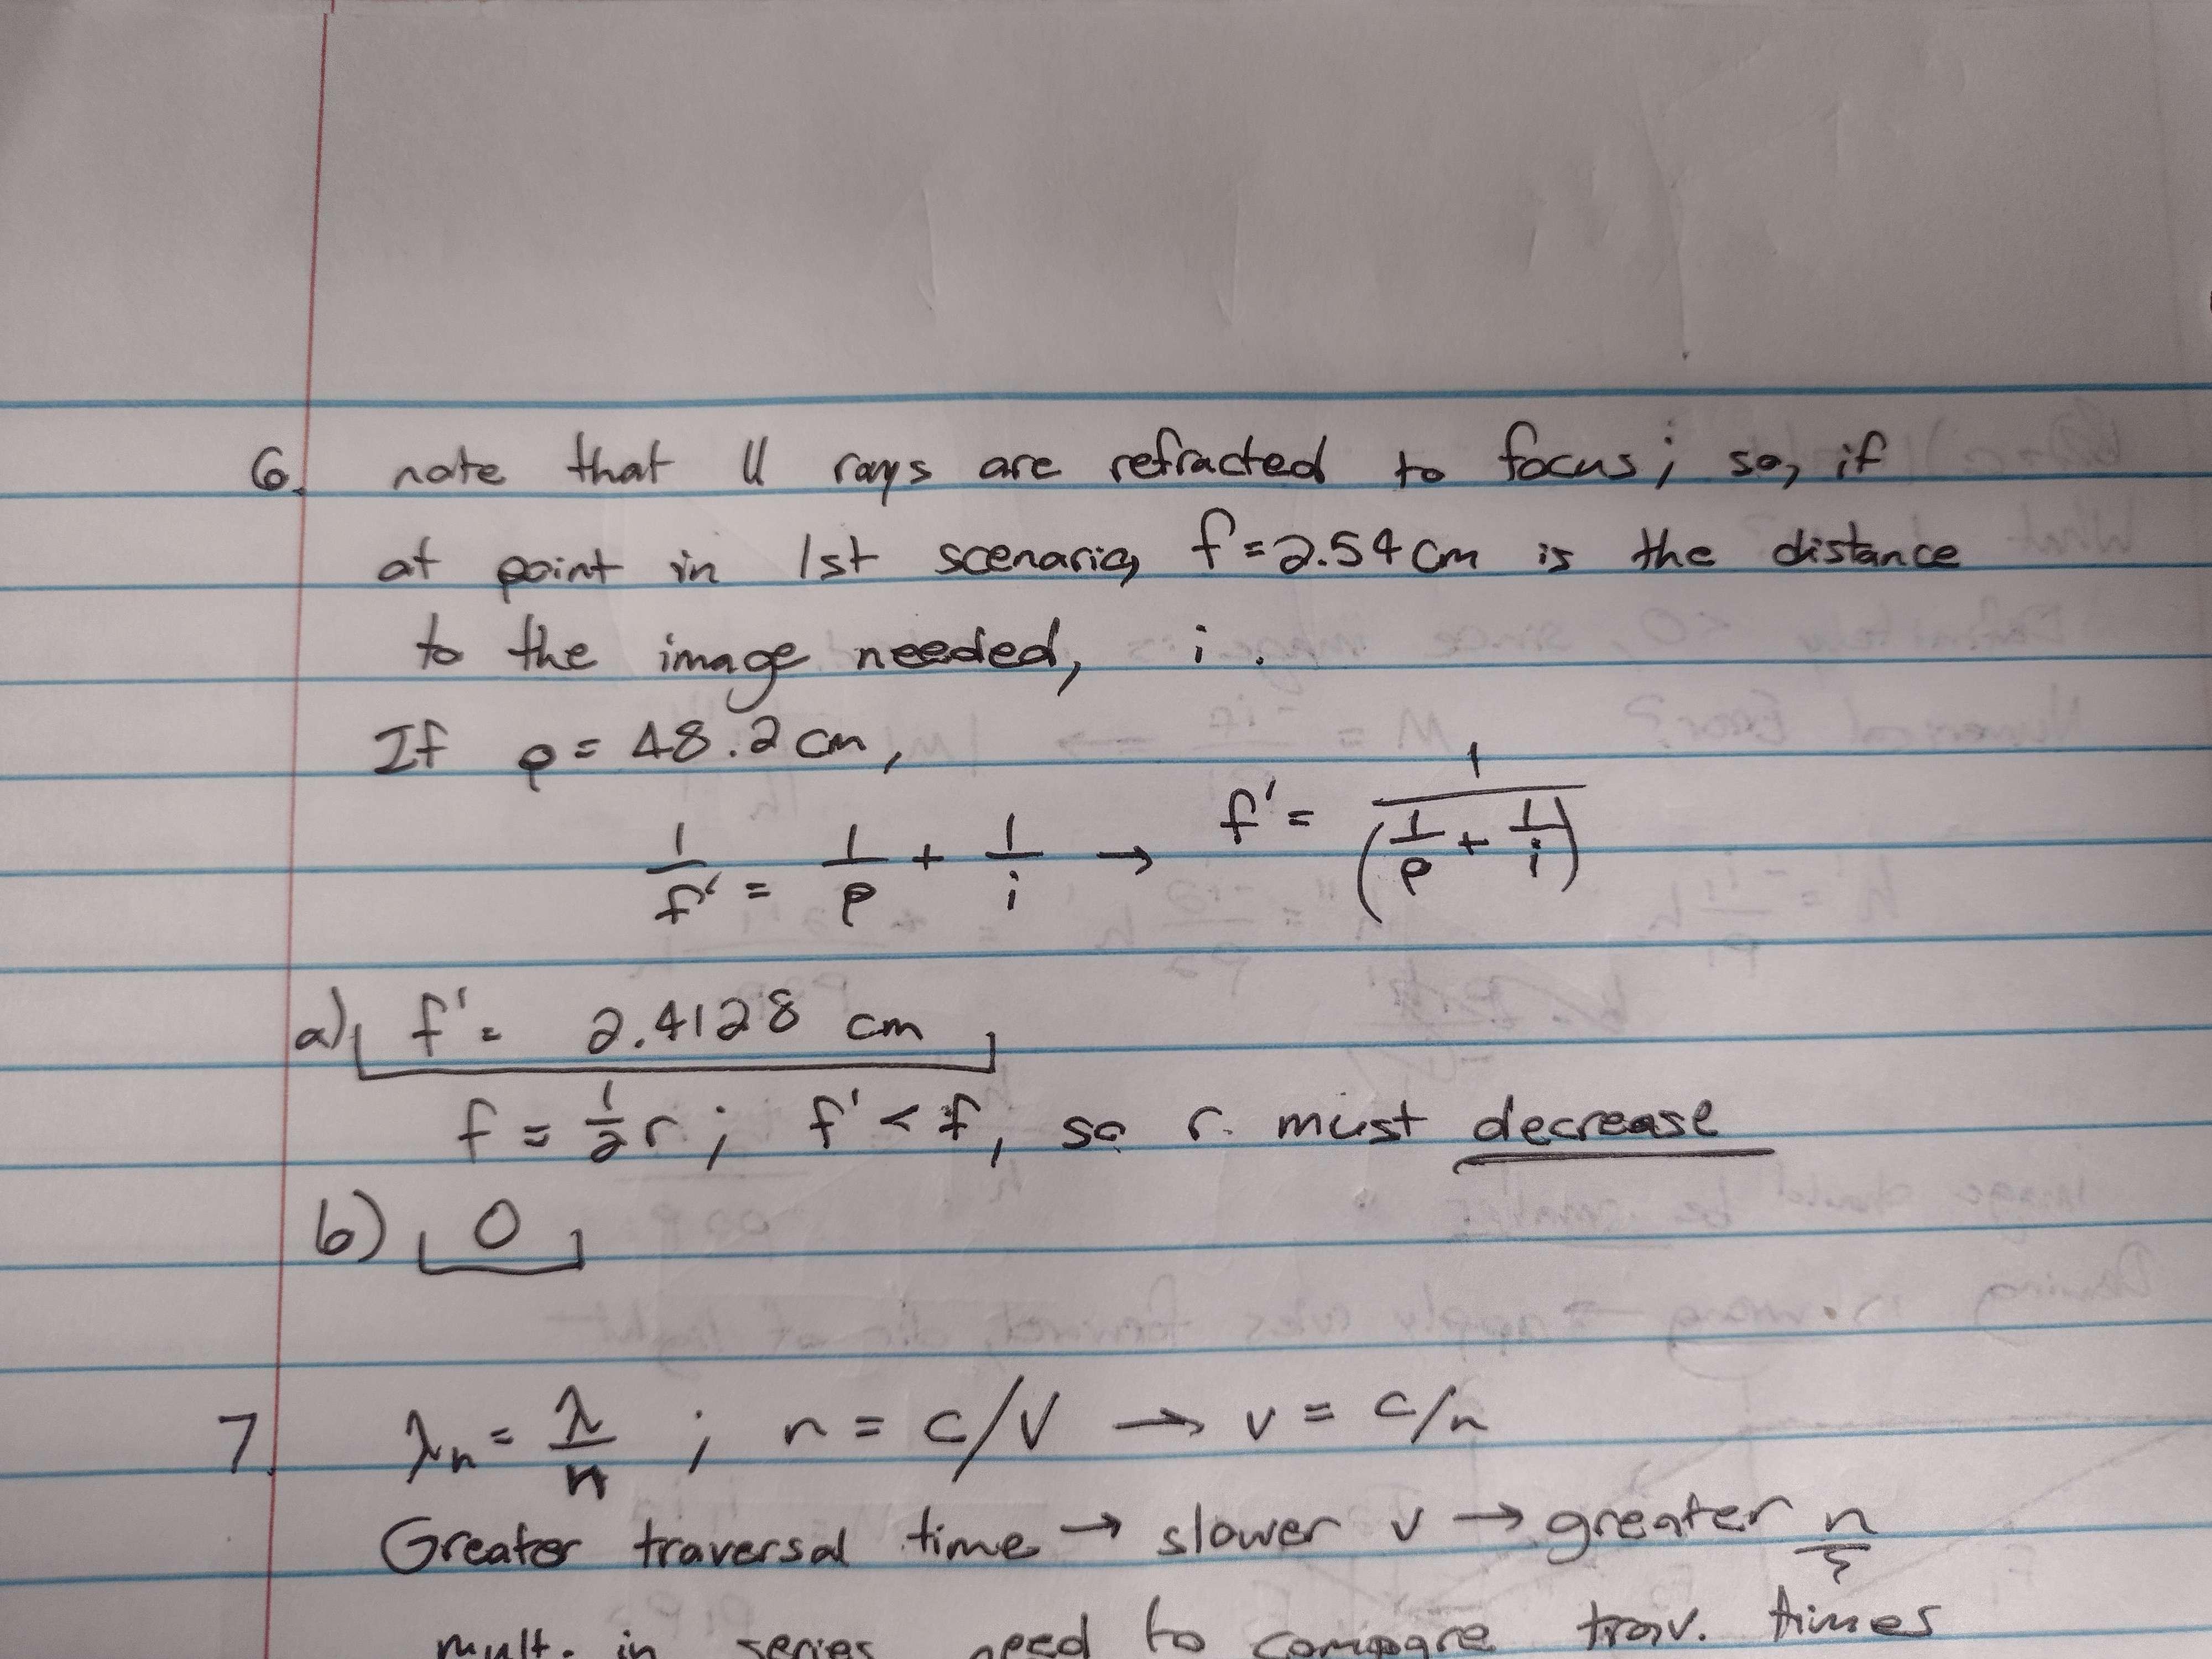 6. note that || rays are refracted to focus; so, if
at point in 1st scenario, f=2.54cm is the distance
to the image needed, i.
If p = 48.2 cm,
1/f' = 1/p + 1/i → f' = 1/(1/p + 1/i)
a) f' = 2.4128 cm
f = 1/2 r; f' < f, so r must decrease
b) 0
7. λn = λ/n ; n = c/v → v = c/n
Greater traversal time → slower v → greater n
mult. in series need to compare trav. times